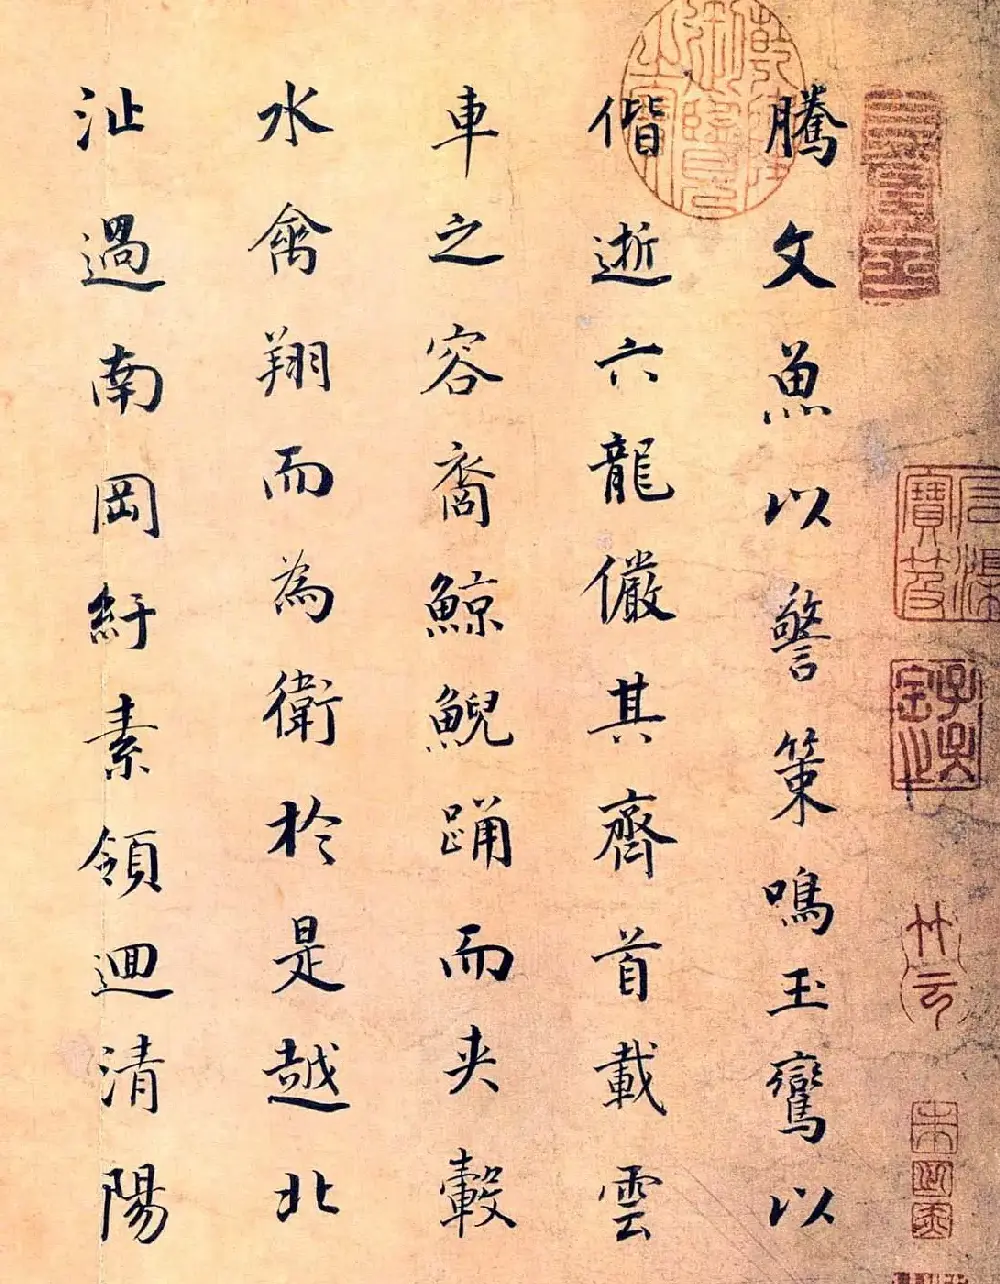 騰文魚以警策鳴玉鸞以
偕逝六龍儼其齊首載雲
車之容裔鯨鯢踊而夾轂
水禽翔而為衛於是越北
沚過南岡紆素領迴清陽